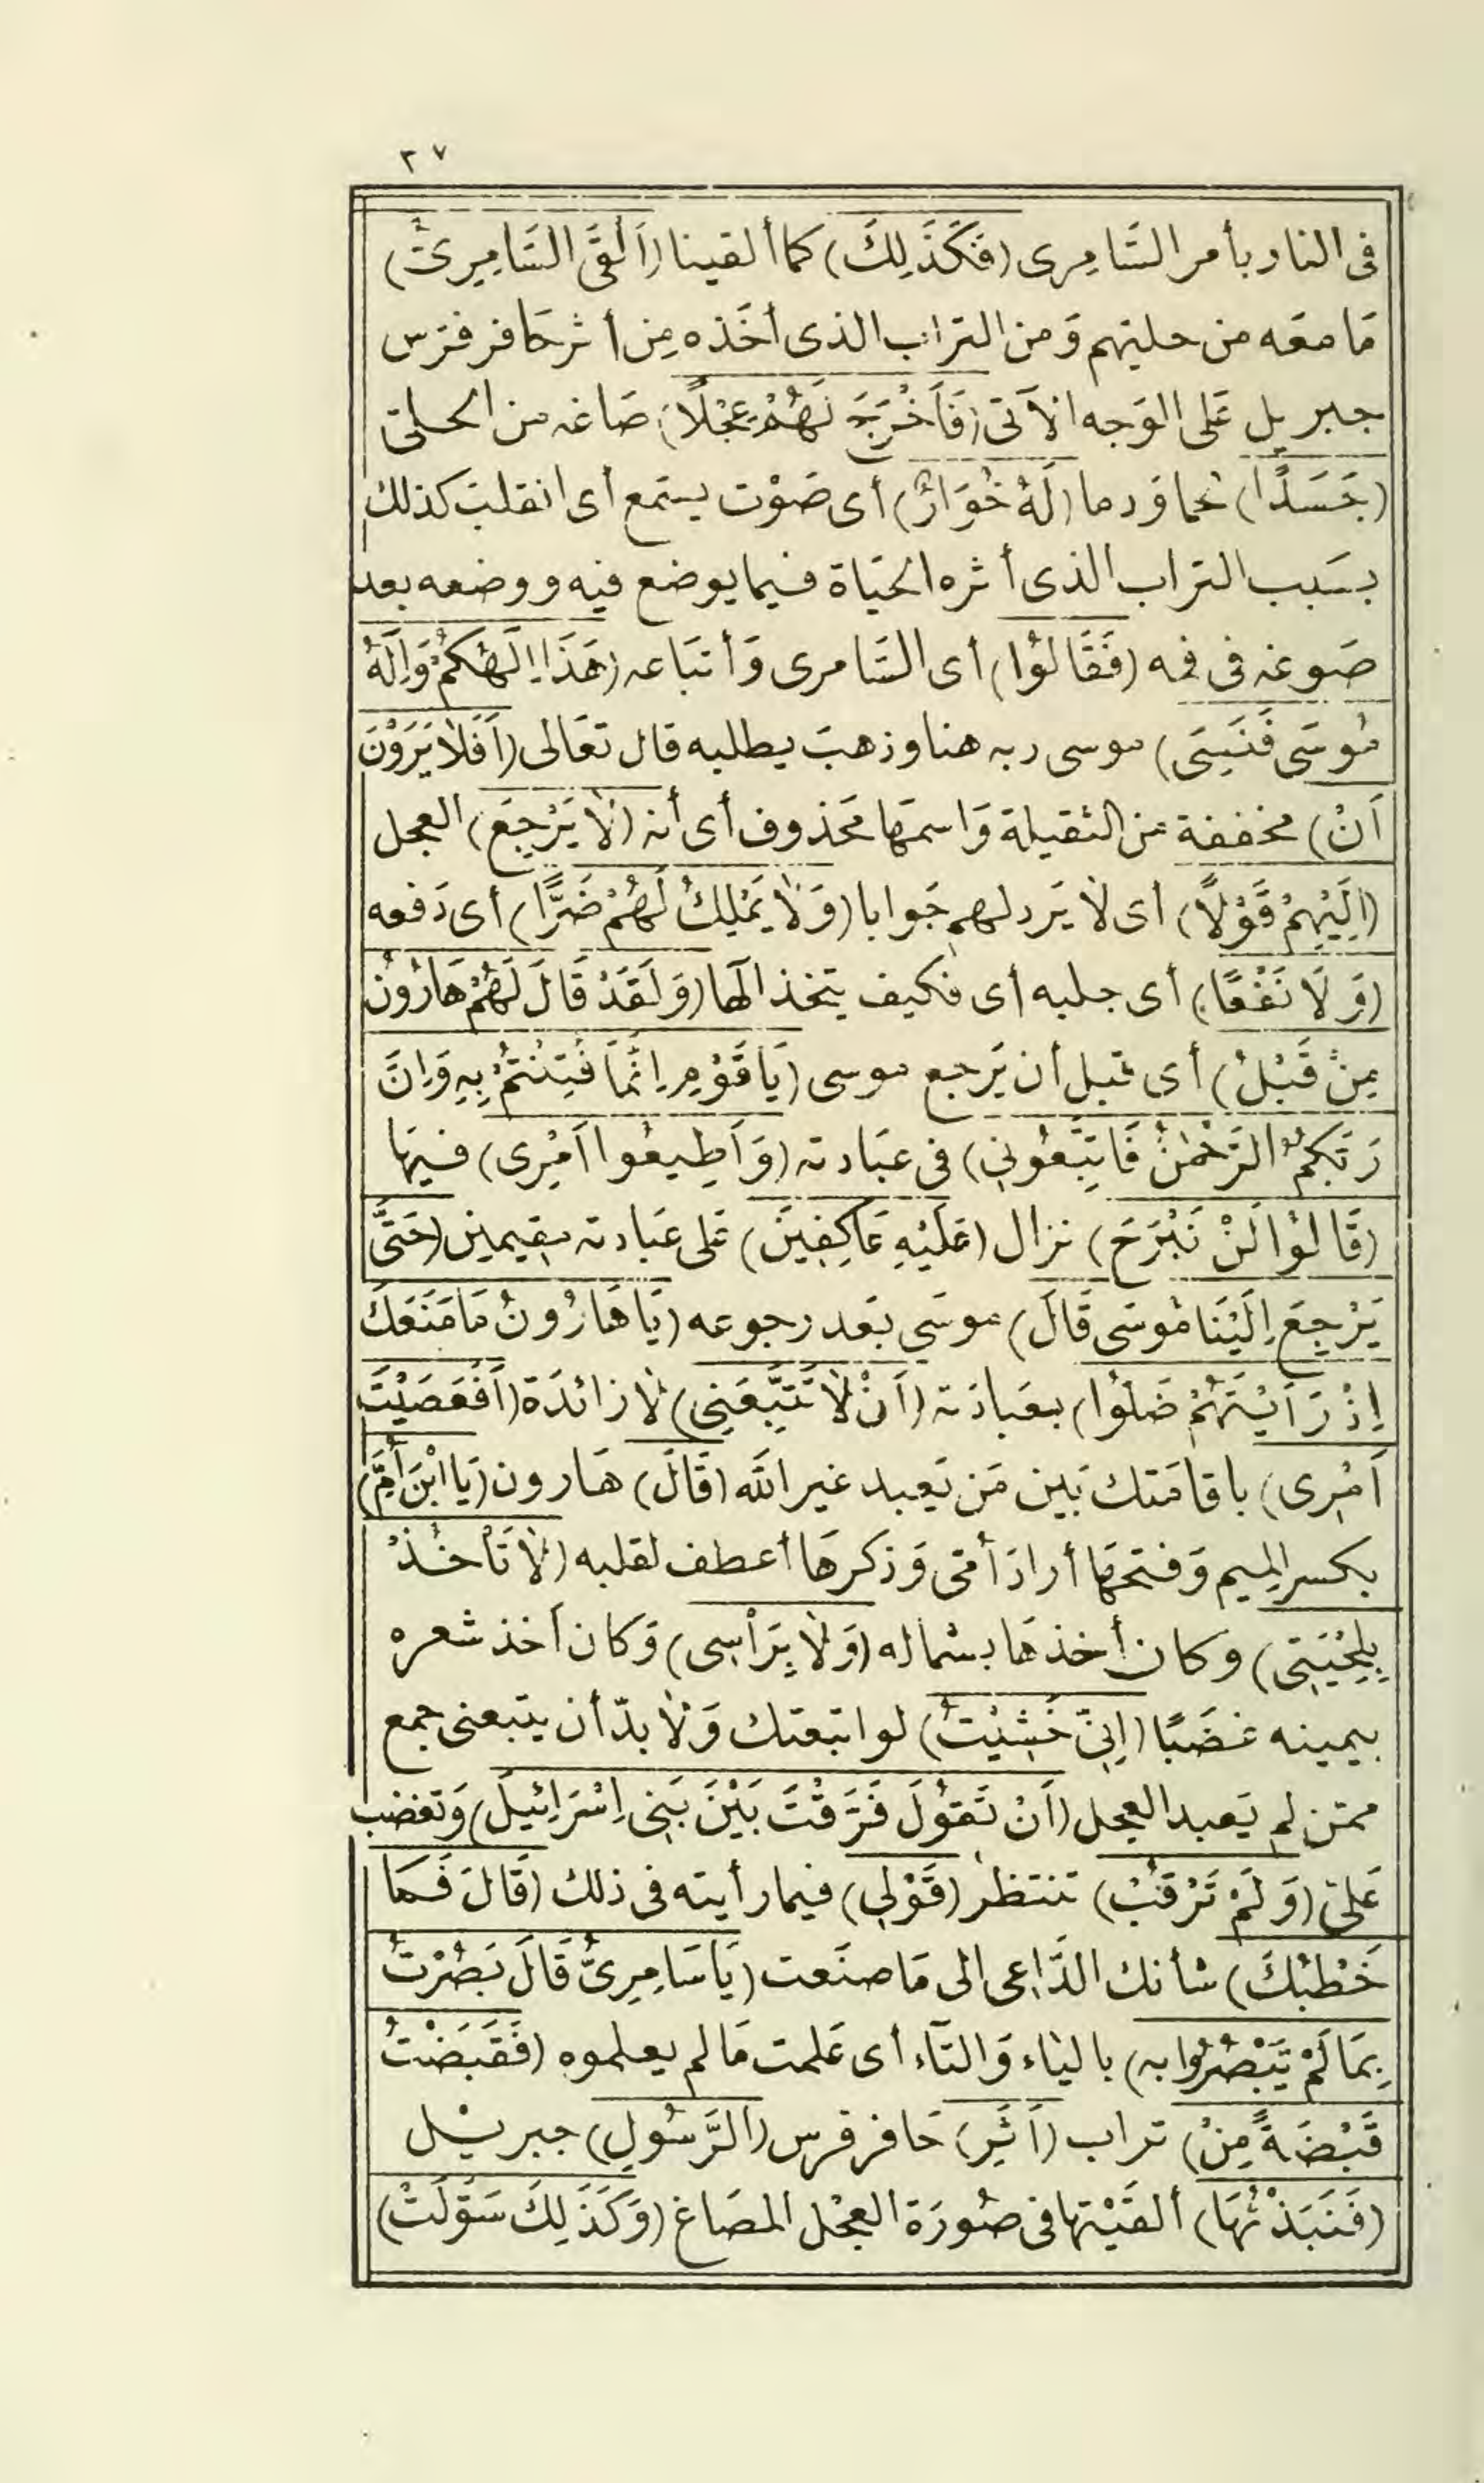 ٣٧
فى النار بأمر السَّامِرى (فَكَذَلِكَ) كما ألقينا (أَلْقَى السَّامِرِىُّ)
مَا معَه من حليهم وَمن التراب الذى أخَذه مِن أثر حَافر فرَس
جبريل عَلى الوَجه الآتى (فَأَخْرَجَ لَهُمْ عِجْلًا) صَاغه من الحلىّ
(جَسَدًا) لحما ودما (لَهُ خُوَارٌ) أى صَوْت يسمع أى انقلبَ كذلك
بسَبب التراب الذى أثره الحيَاة فيما يوضع فيه ووضعه بعد
صَوغه فى فمه (فَقَالُوا) أى السَّامرى وَأتبَاعه (هَذَا إِلَهُكُمْ وَإِلَهُ
مُوسَى فَنَسِىَ) موسى ربه هنا وذهبَ يطلبه قال تعَالى (أَفَلَا يَرَوْنَ
أَنْ) مخففة من الثقيلة وَاسمهَا مَحذوف أى أنه (لَا يَرْجِعُ) العجل
(إِلَيْهِمْ قَوْلًا) أى لا يَرد لهم جَوابا (وَلَا يَمْلِكُ لَهُمْ ضَرًّا) أى دَفعه
(وَلَا نَفْعًا) أى جلبه أى فكيف يتخذ الٓها (وَلَقَدْ قَالَ لَهُمْ هَارُونُ
مِنْ قَبْلُ) أى قبل أن يَرجع موسى (يَا قَوْمِ إِنَّمَا فُتِنْتُمْ بِهِ وَإِنَّ
رَبَّكُمُ الرَّحْمٰنُ فَاتَّبِعُونِى) فى عبَادته (وَأَطِيعُوا أَمْرِى) فيهَا
(قَالُوا لَنْ نَبْرَحَ) نزال (عَلَيْهِ عَاكِفِينَ) عَلى عبَادته مقيمين (حَتَّى
يَرْجِعَ إِلَيْنَا مُوسَى قَالَ) موسَى بَعد رجوعه (يَا هَارُونُ مَا مَنَعَكَ
إِذْ رَأَيْتَهُمْ ضَلُّوا) بعبَادَته (أَنْ لَا تَتَّبِعَنِى) لا زائدَة (أَفَعَصَيْتَ
أَمْرِى) باقامَتك بَين مَن يَعبد غير الله (قَالَ) هَارون (يَا ابْنَ أُمِّ)
بكسر الميم وَفتحهَا أرادَ أمّى وَذكرهَا أعطف لقلبه (لَا تَأْخُذْ
بِلِحْيَتِى) وكان أخذهَا بشماله (وَلَا بِرَأْسِى) وَكان أخذ شعره
بيمينه غضَبًا (إِنِّى خَشِيْتُ) لو اتبعتك وَلا بدّ أن يتبعنى جمع
ممّن لم يَعبد العجل (أَنْ تَقُولَ فَرَّقْتَ بَيْنَ بَنِى إِسْرَائِيلَ) وَتغضب
عَلىّ (وَلَمْ تَرْقُبْ) تنتظر (قَوْلِى) فيما رأيته فى ذلك (قَالَ فَمَا
خَطْبُكَ) شأنك الدَّاعى الى مَا صنَعت (يَا سَامِرِىُّ قَالَ بَصُرْتُ
بِمَا لَمْ يَبْصُرُوا بِهِ) باليَاء وَالتَّاء أى عَلمت مَا لم يعلموه (فَقَبَضْتُ
قَبْضَةً مِنْ) تراب (أَثَرِ) حَافر فرس (الرَّسُولِ) جبريل
(فَنَبَذْتُهَا) ألقَيْتها فى صُورَة العجْل المصَاغ (وَكَذَلِكَ سَوَّلَتْ)